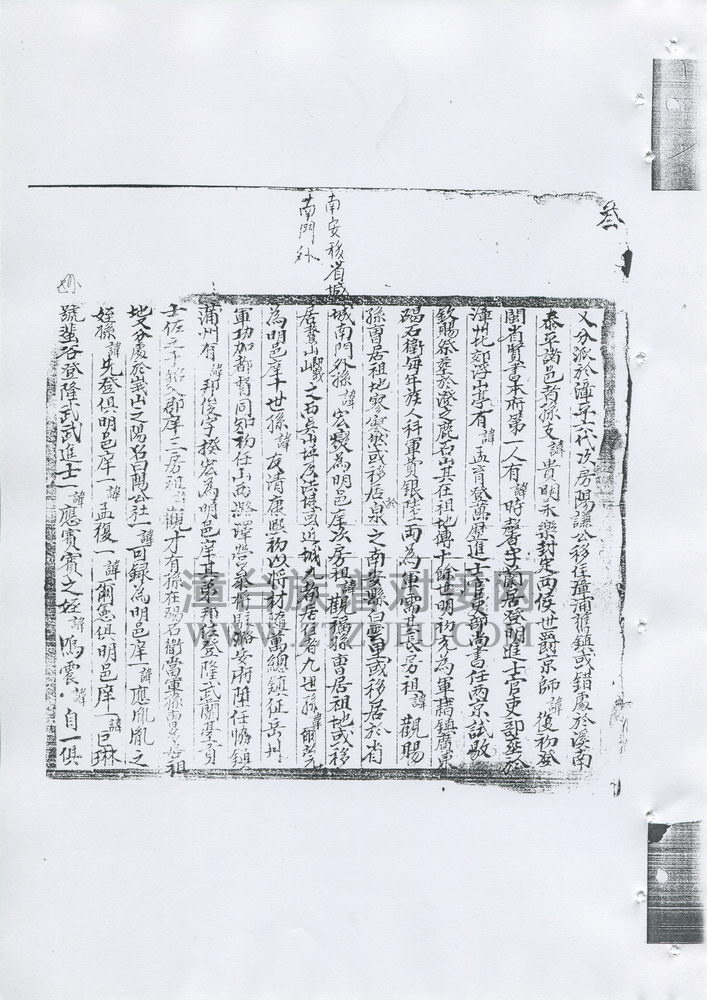 叁
南安移省城
南門外
又分派於漳平六代次房賜謙公移住漳浦舊鎮或錯處於溪南
泰平諸邑者孫支諱貴明永樂封定西侯世爵京師諱復初登
閩省賢書本府第一人有諱時馨字蘭居登明進士官吏部葬於
漳北郊浮山亭有諱孟育登萬歷進士官吏部尚書任兩京試
欽賜祭葬於澄之鹿石山其在祖地傳十餘世明初充為軍籍鎮廣東
碣石衛每年族人科軍貲銀陸兩為軍需其長房祖諱觀賜
孫曹居祖地寥寥然或移居泉之南安縣白雲里或移居於省
城南門外孫諱宏 為明邑庠次房祖諱觀 孫曹居祖地或移
居 山巖之西 山坪及 近城九都居住者九世孫諱爾
為明邑庠十世孫諱友清康熙初以將材 萬總鎮征岳州
軍功加都督同知初任山西潞澤營 將 潞安府 任
蒲州有諱邦俊字揆宏為明邑庠其弟邦 登隆武蘭 貢
士佐之子 入郡庠三房祖諱觀才有孫在碣石衛當軍孫曹 祖
地又分處於嵩山之陽名曰陽公社一諱可録為明邑庠一諱應胤胤之
姪孫諱先登俱明邑庠一諱孟復一諱爾憲俱明邑庠一諱巨琳
號蜚谷登隆武武進士一諱應賓賓之姪諱鳴震諱自一俱
漳台族谱对接网
WWW.ZTZUPU.COM